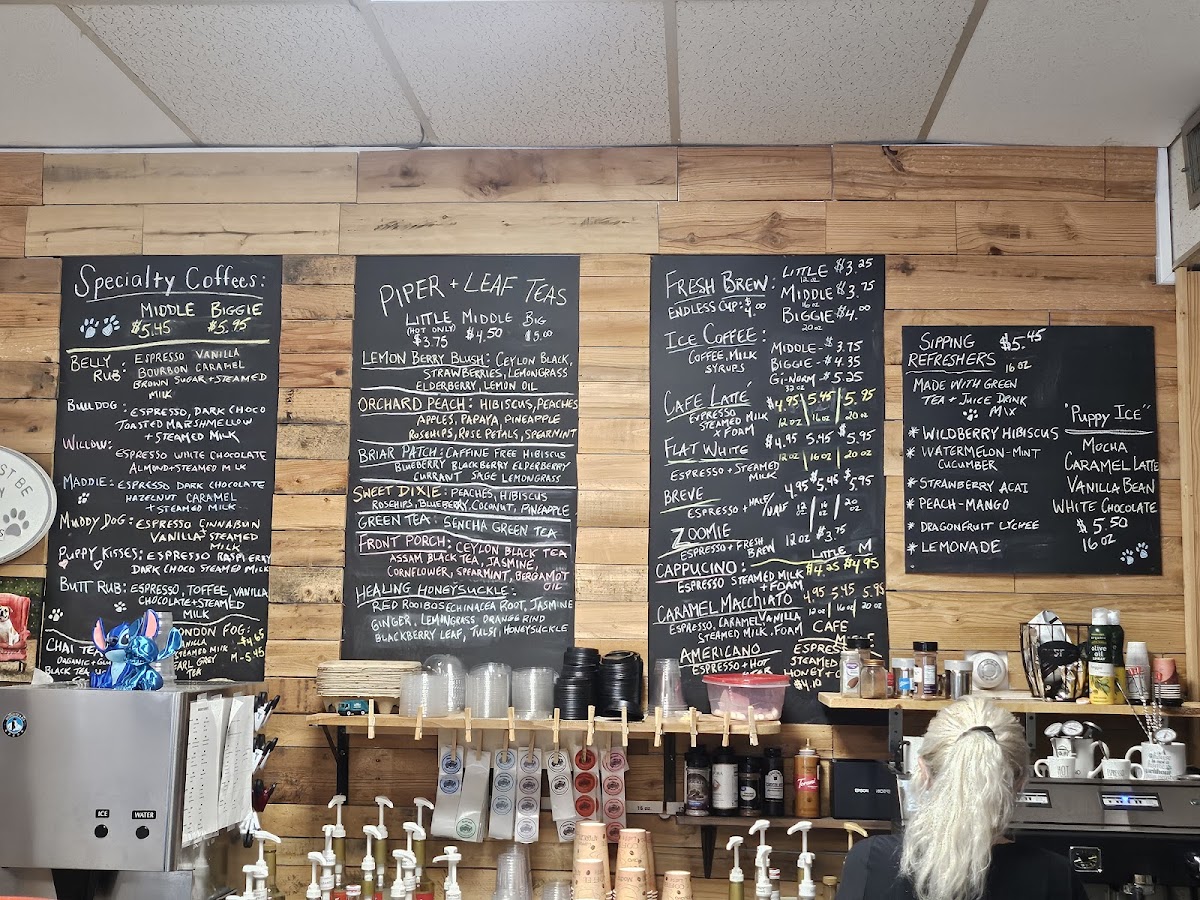 Specialty Coffees:
MIDDLE BIGGIE
$5.45 $5.95
BELLY RUB: ESPRESSO VANILLA
BOURBON CARAMEL
BROWN SUGAR + STEAMED
MILK
BULLDOG: ESPRESSO, DARK CHOCO
TOASTED MARSHMELLOW
+ STEAMED MILK
WILLOW: ESPRESSO WHITE CHOCOLATE
ALMOND + STEAMED MILK
MADDIE: ESPRESSO DARK CHOCOLATE
HAZELNUT CARAMEL
+ STEAMED MILK
MUDDY DOG: ESPRESSO CINNABUN
VANILLA + STEAMED
MILK
PUPPY KISSES: ESPRESSO RASPBERRY
DARK CHOCO STEAMED MILK
BUTT RUB: ESPRESSO, TOFFEE, VANILLA
CHOCOLATE + STEAMED
MILK
CHAI TEA
ORGANIC +
BLACK TEA
LONDON FOG:
VANILLA
STEAMED MILK
EARL GREY
TEA
$4.65
M-5.45
PIPER + LEAF TEAS
LITTLE MIDDLE BIG
(HOT ONLY)
$3.75 $4.50 $5.00
LEMON BERRY BLUSH: CEYLON BLACK,
STRAWBERRIES, LEMONGRASS
ELDERBERRY, LEMON OIL
ORCHARD PEACH: HIBISCUS, PEACHES
APPLES, PAPAYA, PINEAPPLE
ROSEHIPS, ROSE PETALS, SPEARMINT
BRIAR PATCH: CAFFINE FREE HIBISCUS
BLUEBERRY BLACKBERRY ELDERBERRY
CURRANT SAGE LEMONGRASS
SWEET DIXIE: PEACHES, HIBISCUS
ROSEHIPS, BLUEBERRY, COCONUT, PINEAPPLE
GREEN TEA: SENCHA GREEN TEA
FRONT PORCH: CEYLON BLACK TEA
ASSAM BLACK TEA, JASMINE,
CORNFLOWER, SPEARMINT, BERGAMOT
OIL
HEALING HONEYSUCKLE:
RED ROOIBOS ECHINACEA ROOT, JASMINE
GINGER, LEMONGRASS ORANGE RIND
BLACKBERRY LEAF, TULSI, HONEYSUCKLE
FRESH BREW: LITTLE $3.25
12 oz
ENDLESS CUP: $4.00 MIDDLE $3.75
16 oz
BIGGIE $4.00
20 oz
ICE COFFEE:
COFFEE, MILK
SYRUPS
MIDDLE - $3.75
BIGGIE - $4.35
GI-NORM - $5.25
32 oz
CAFE LATTÉ $4.95 5.45 5.95
ESPRESSO
STEAMED MILK
X FOAM
12 oz 16 oz 20 oz
FLAT WHITE $4.95 5.45 $5.95
12 oz 16 oz 20 oz
ESPRESSO + STEAMED
MILK
BREVE 4.95 $5.45 $5.95
ESPRESSO + HALF/HALF 12 oz 16 oz 20 oz
ZOOMIE 12 oz $3.75
ESPRESSO + FRESH
BREW
CAPPUCINO: LITTLE M
$4.25 $4.95
ESPRESSO STEAMED MILK
+ FOAM
CARAMEL MACCHIATO 4.95 5.45 5.95
12 oz 16 oz 20 oz
ESPRESSO, CARAMEL VANILLA
STEAMED MILK, FOAM
AMERICANO
ESPRESSO + HOT
CAFE
ESPRESS
STEAMED
HONEY +
$4.10
SIPPING $5.45
REFRESHERS 16 oz
MADE WITH GREEN
TEA + JUICE DRINK
MIX
* WILDBERRY HIBISCUS
* WATERMELON-MINT
CUCUMBER
* STRAWBERRY ACAI
* PEACH-MANGO
* DRAGONFRUIT LYCHEE
* LEMONADE
"PUPPY ICE"
MOCHA
CARAMEL LATTE
VANILLA BEAN
WHITE CHOCOLATE
$5.50
16 oz
ST BE
ICE WATER
16 oz
Torani
EPSON
olive oil
SPRAY